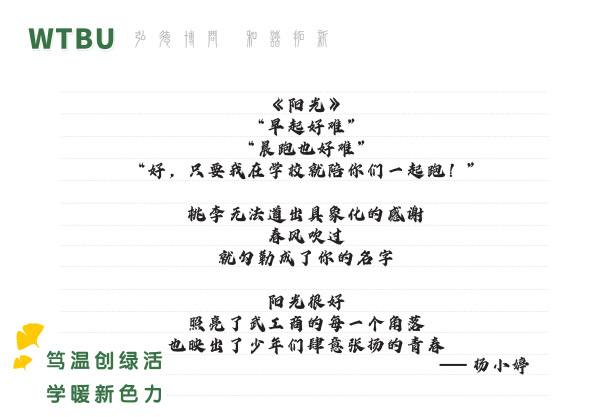 WTBU 弘毅博问 和谐拓新
《阳光》
“早起好难”
“晨跑也好难”
“好，只要我在学校就陪你们一起跑！”
桃李无法道出具象化的感谢
春风吹过
就勾勒成了你的名字
阳光很好
照亮了武工商的每一个角落
也映出了少年们肆意张扬的青春
—— 杨小婷
笃温创绿活
学暖新色力